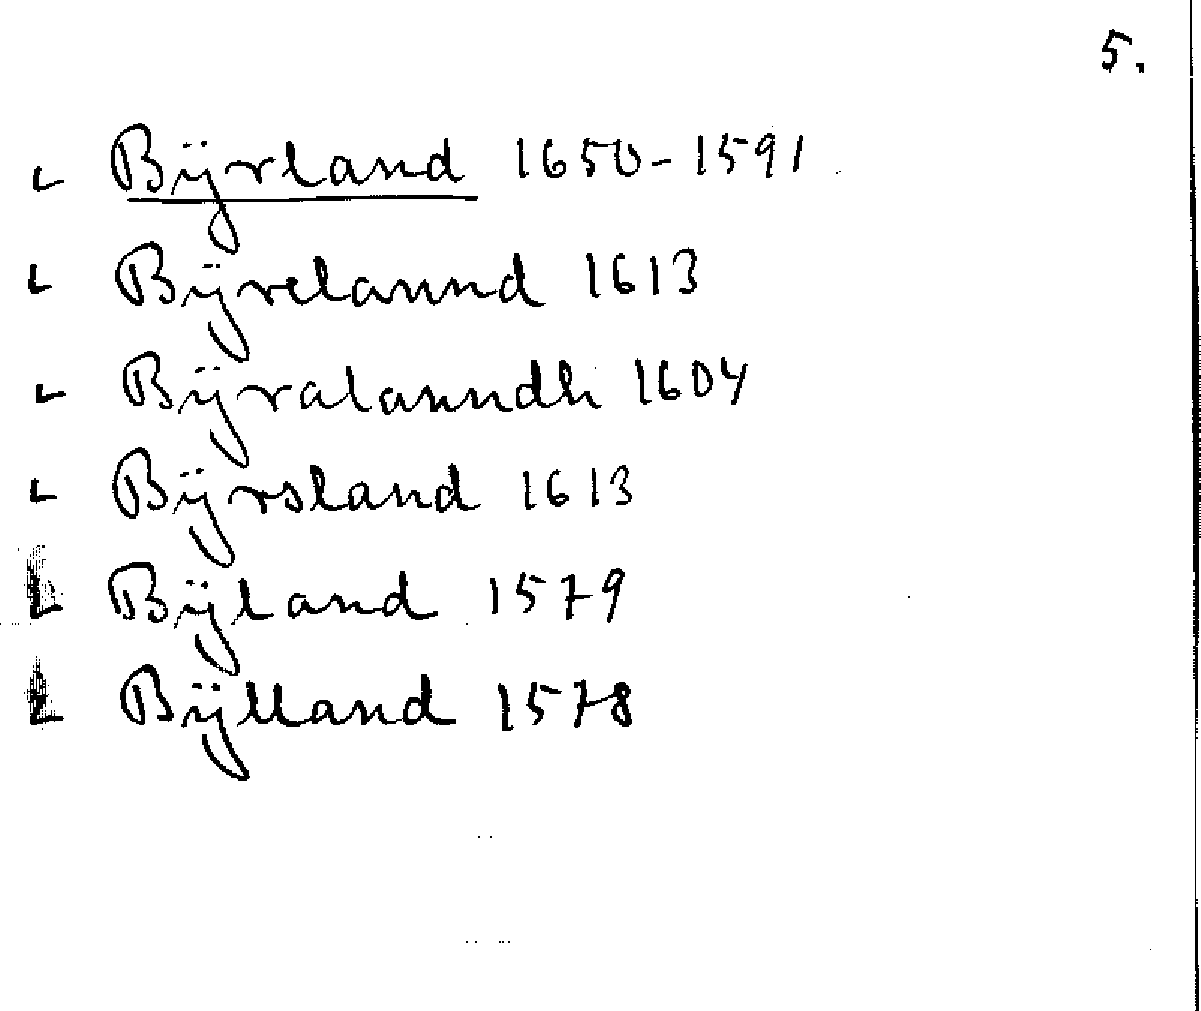 5.
L Bijrland 1650-1591
L Bijrelannd 1613
L Bijralanndh 1604
L Bijrsland 1613
L Bijland 1579
L Bijlland 1578